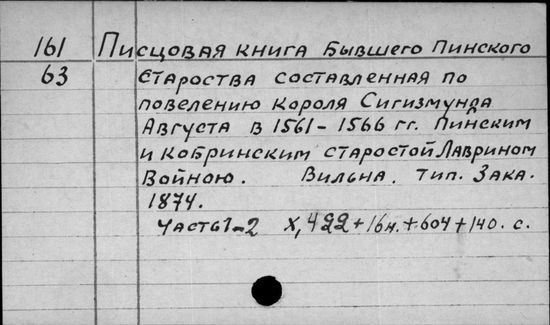 161 Писцовая книга бывшего Пинского
63 староства составленная по
повелению короля Сигизмунда
Августа в 1561-1566 гг. Пинским
и кобринским старостой Лаврином
Войною. Вильна. тип. Зака.
1874.
Часть 1-2 X, 422+16н.+604+140. с.